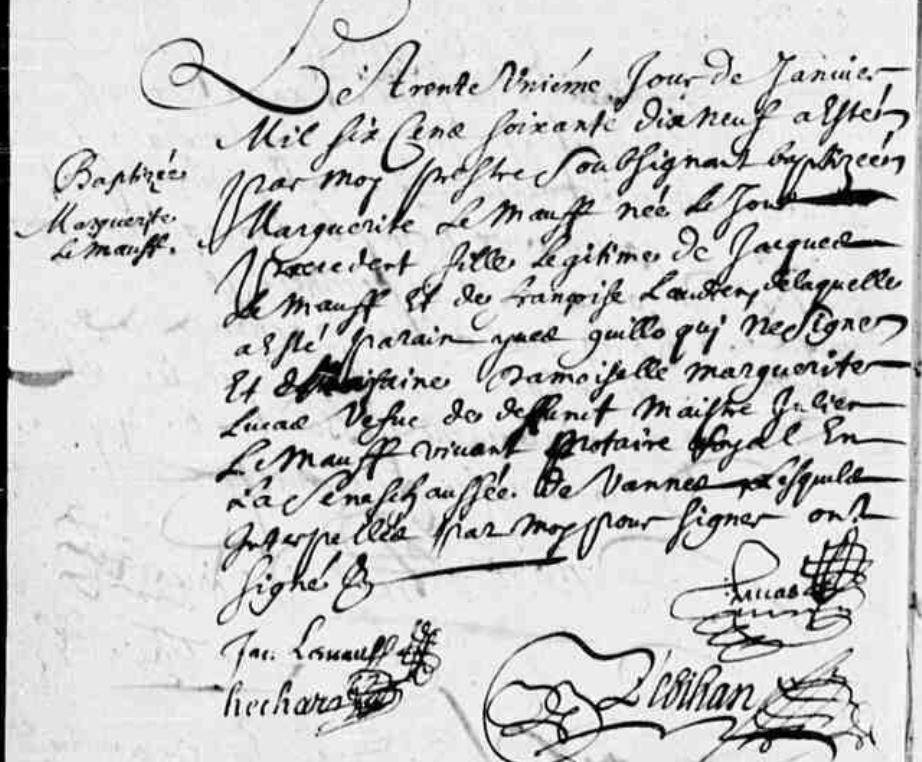 Le trente Uniéme Jour de Januier
Mil six Cens soixante dix neuf a Esté
Baptizée
par moy prestre Soubsignant baptizée
Marguerite
Marguerite Le Mauff née Le Jour
Le Mauff.
precedent fille Legitime de Jacques
Le Mauff Et de françoise Laudren, delaquelle
a Esté parain yues guillo qui ne Signe
Et maraine Damoiselle Marguerite
Lucas Vefue de deffunct Maistre Julien
Le Mauff viuant Notaire Royal En
La Seneschaussée de Vannes Lesquels
Interpellés par moy pour signer ont
signé
Lucas
Jac. Lemauff
hechart
Lebihan